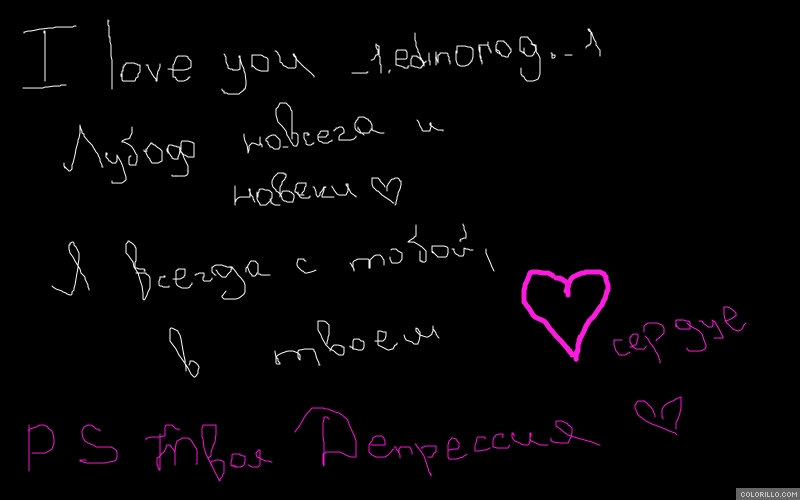 I love you _1.edinorog._1
Лубофф навсега и
навеки ♡
Я всегда с тобой,
в твоем
сердце
PS Твоя Депрессия ♡
COLORILLO.COM